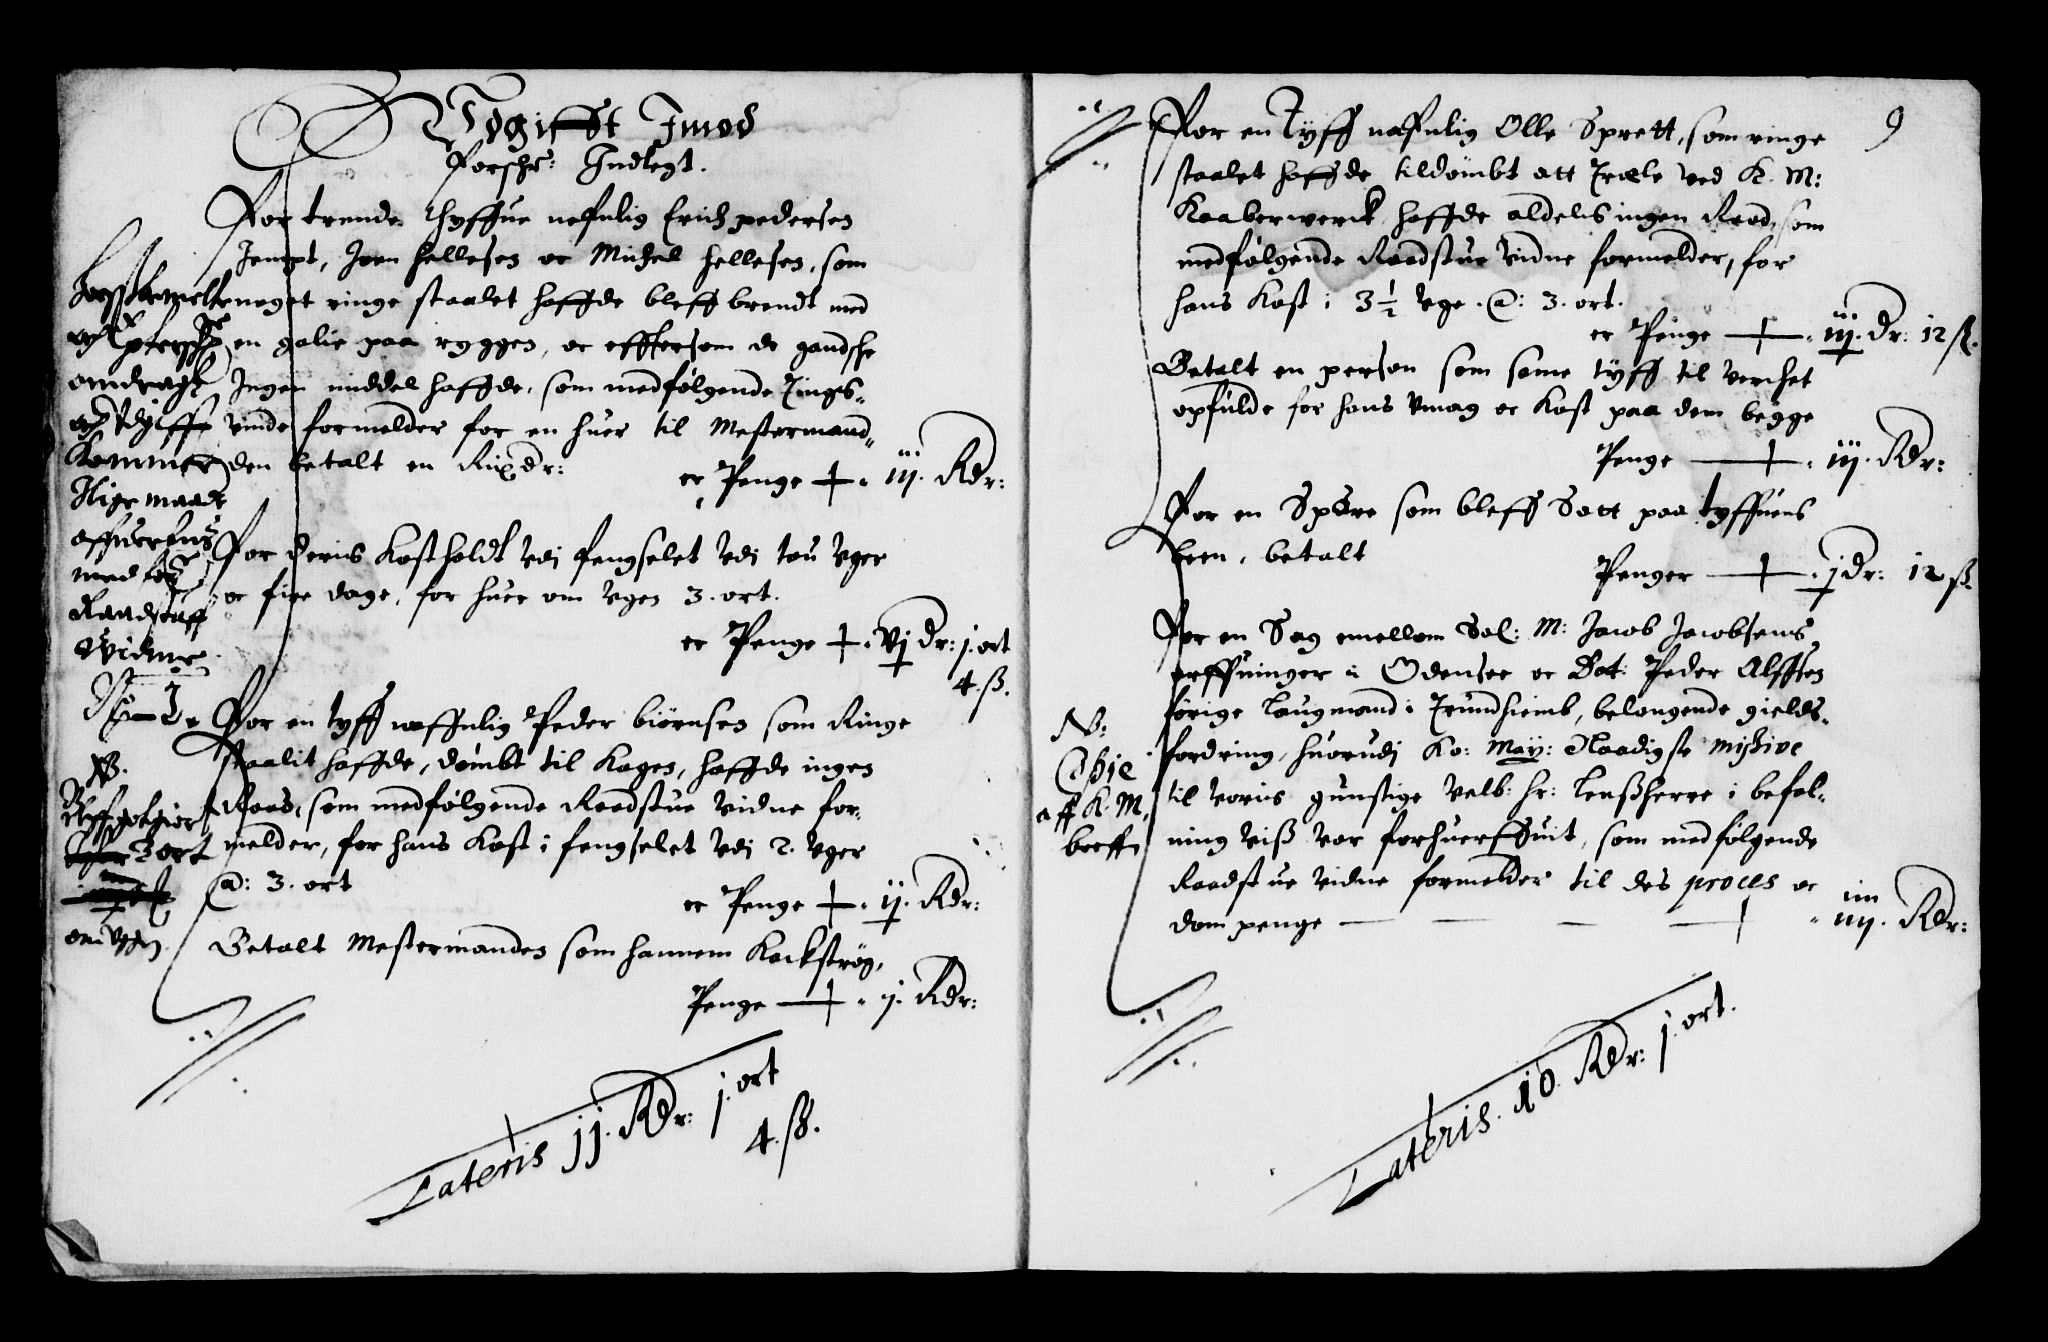 Udgifft Imod
forschr: Indtegt.
For trende thyffue nefnlig Erich pedersen
Jempt, Joen Hellesen oc Michel Hellesen, som
noget ringe staalet haffde bleff brendt med
en galie paa ryggen, oc efftersom de gandsche
Ingen middel haffde, som medfølgende Tings-
vinde formelder for en huer til Mestermand-
den betalt en Rixdr:
er Penge iij. Rdr:
For deris Kostholdt udi fengselet udi tou Uger
oc fire dage, for huer om Ugen 3. ort.
er Penge vj dr: j. ort
4. ß.
For en tyff neffnlig Peder biørnsen som Ringe
staalit haffde, dømbt til Kagen, haffde ingen
Raad, som medfølgende Raadstue vidne for-
melder, for hans Kost i fengselet udi 2. Uger
@: 3. ort
er Penge ij. Rdr:
Betalt Mestermanden som hannem Kackstrøg,
Penge j. Rdr:
Lateris jj. Rdr: j. ort
4. ß.
om dragt
och Udgifft
Kommer
Lige maade
med
Raadstuff
Widne
NB.
3 ort
om Ugen
9
For en Tyff nafnlig Olle Sprett, som ringe
staalet haffde tildømbt att Træle ved K. M:
Kaaberwerck haffde aldelis ingen Raad, som
medfølgende Raadstue vidne formelder, for
hans Kost i 3 ½ Uge. @: 3. ort.
er Penge iij. dr: 12 ß.
Betalt en person som same tyff til Verchet
opfulde for hans Umag oc Kost paa dem begge
Penge iij. Rdr:
For en Spere som bleff Satt paa tyffuens
been, betalt
Penger j dr: 12 ß.
For en Sag emellom Sal: M: Jacob Jacobsens
arffuinger i Odensee oc Bot: Peder Alffsen
førige Laugmand i Trundhiemb, belangende gields-
fordring, huorudj Ko: May: Naadigste missive
til voris gunstige Velb: hr: Lenßherre i befal-
ning viß var forhuerffuit, som medfølgende
Raadstue vidne formelder til des proces oc
dom penge iiij. Rdr:
NB:
Copie
aff K. M.
breff
Lateris. 10. Rdr: j. ort.